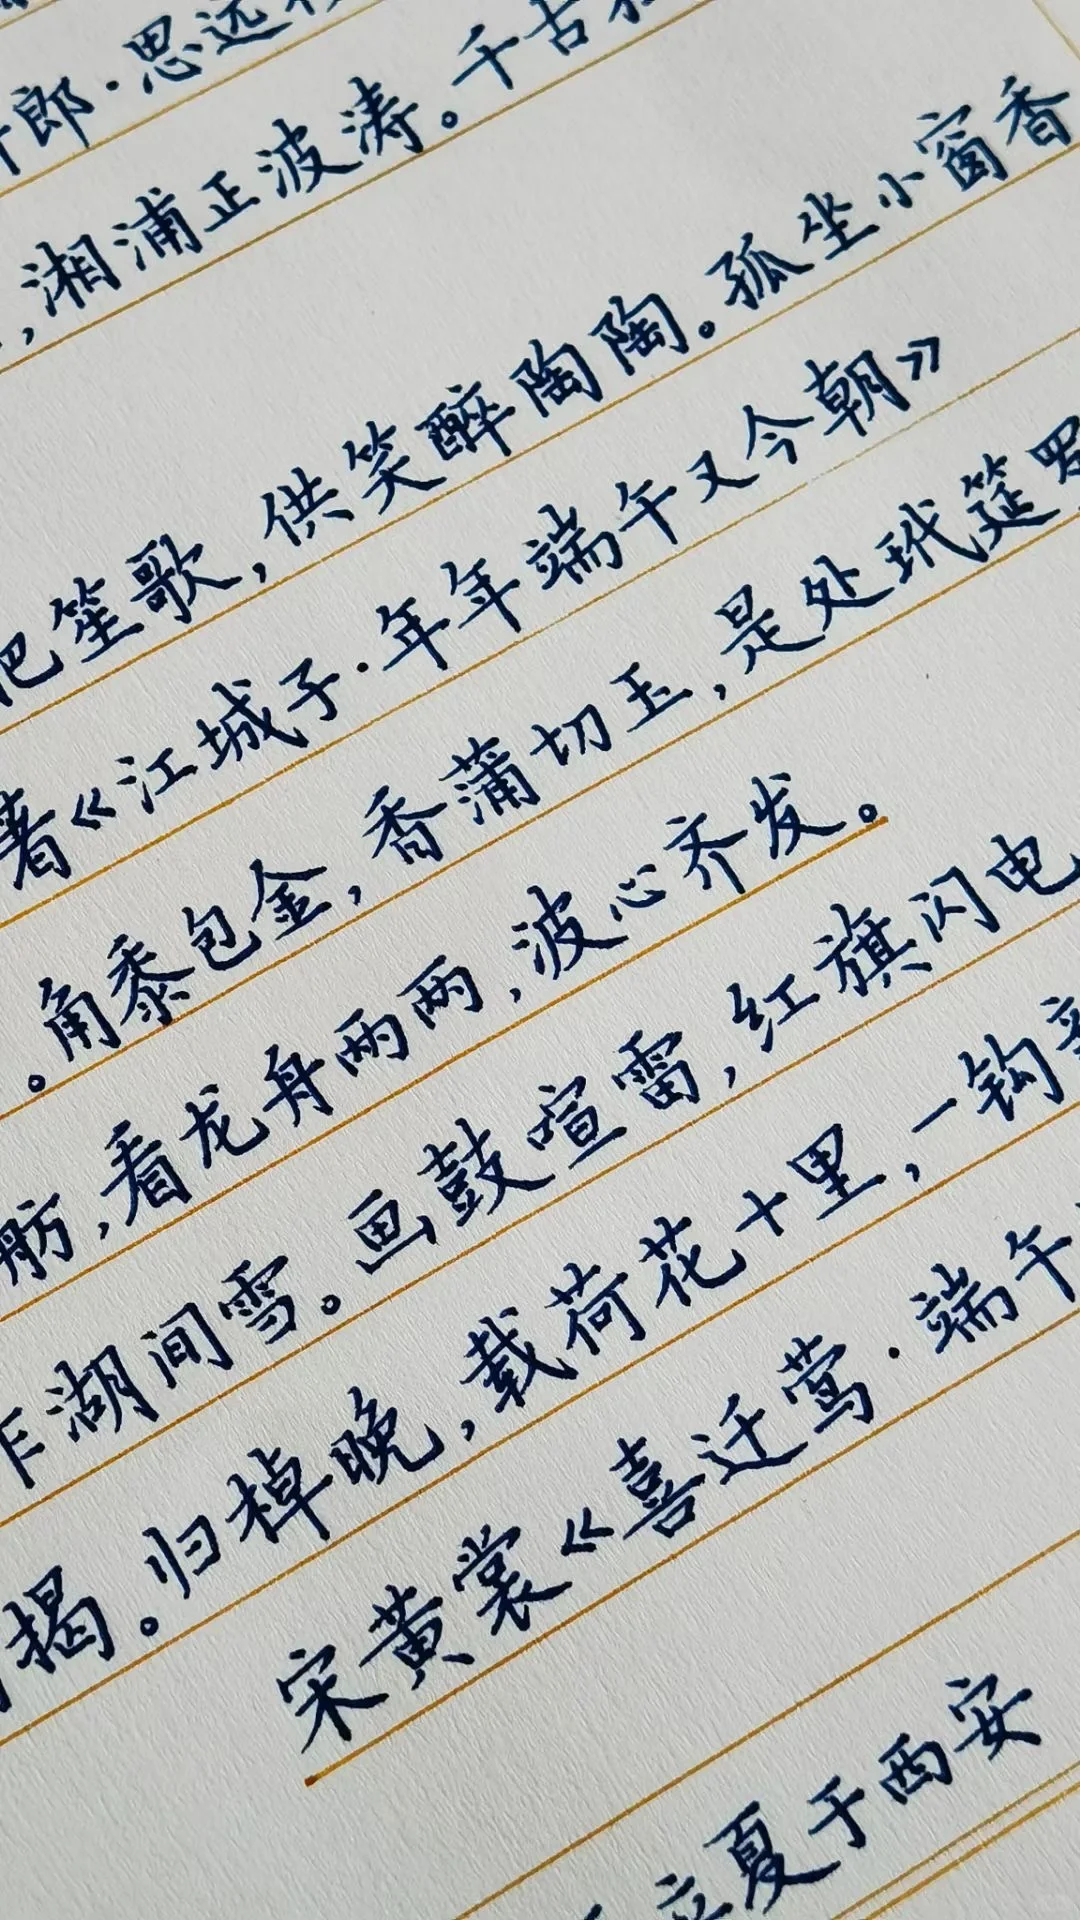 郎·思远
,湘浦正波涛。千古
把笙歌,供笑醉陶陶。孤坐小窗香
著《江城子·年年端午又今朝》
。角黍包金,香蒲切玉,是处玳筵罗
舫,看龙舟两两,波心齐发。
乍湖间雪。画鼓喧雷,红旗闪电
揭。归棹晚,载荷花十里,一钩
宋黄裳《喜迁莺·端午
立夏于西安